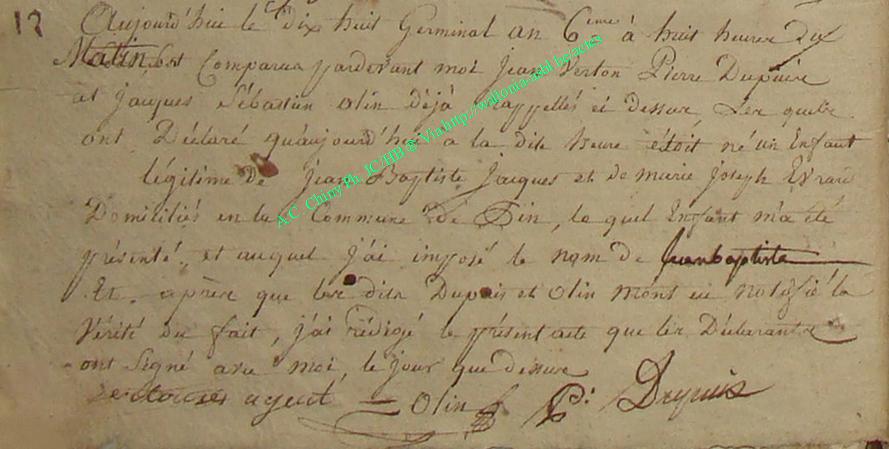 12
Aujourd'hui le dix huit Germinal an 6eme à huit heures du
Matin, est Comparu pardevant moi Jean Verton Pierre Dupuis
et Jacques Sébastien Olin déjà rappellés ci dessus, Les quels
ont Déclaré qu'aujourd'hui à la dite heure étoit né un Enfant
légitime de Jean Baptiste Jacques et de Marie Joseph Evrard
Domiciliés en la Commune de Pin, le quel Enfant m'a été
présenté, et auquel j'ai imposé le nom de Jeanbaptiste
Et après que les dits Dupuis et Olin m'ont eu notifié la
Vérité du fait, j'ai rédigé le présent acte que les Déclarants
ont Signé avec moi, le jour que dessus
agent Olin P: Dupuis
A.C. Chiny Ph. JC/HB @ Via http://wallonia-asbl.be/actes